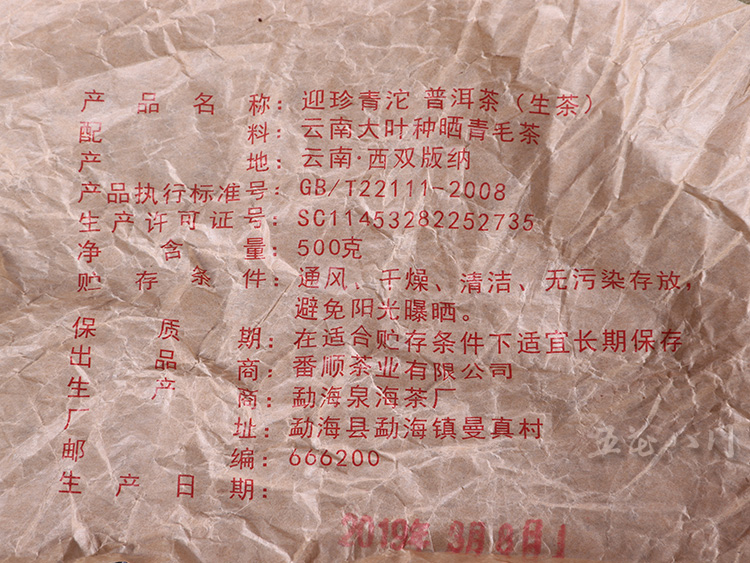 产品名称：迎珍青沱 普洱茶（生茶）
配料：云南大叶种晒青毛茶
产地：云南·西双版纳
产品执行标准号：GB/T22111-2008
生产许可证号：SC11453282252735
净含量：500克
贮存条件：通风、干燥、清洁、无污染存放，
避免阳光曝晒。
保质期：在适合贮存条件下适宜长期保存
出品商：番顺茶业有限公司
生产商：勐海泉海茶厂
厂址：勐海县勐海镇曼真村
邮编：666200
生产日期：
2019年 3月8日